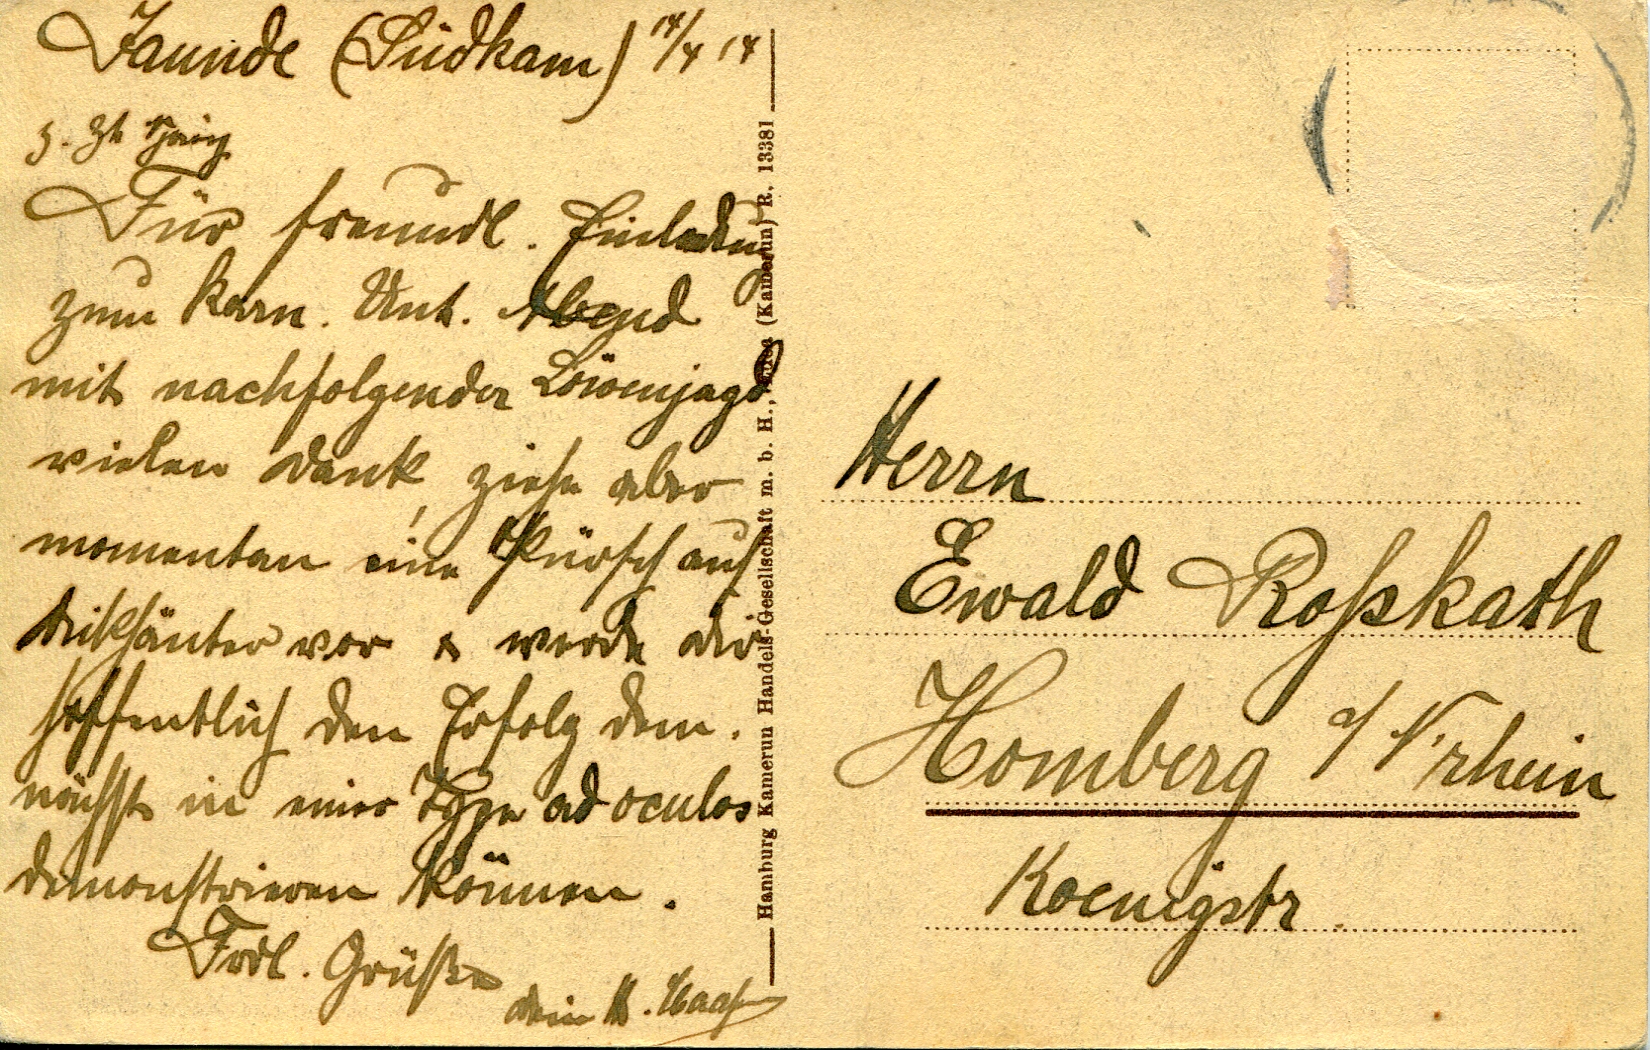 Jaunde (Südkam) 14/4 14
z. Zt
Für freundl. Einladung
zum Karn. Unt. Abend
mit nachfolgender Löwenjagd
vielen Dank, ziehe aber
momentan eine Pürsch auf
Dickhäuter vor & werde dir
hoffentlich den Erfolg dem.
nächst in einer Type ad oculos
demonstrieren können.
Frdl. Grüße
dein
Hamburg Kamerun Handels-Gesellschaft m. b. H., (Kamerun) R. 13381
Herrn
Ewald Roßkath
Homberg a/ N'rhein
Koenigstr.